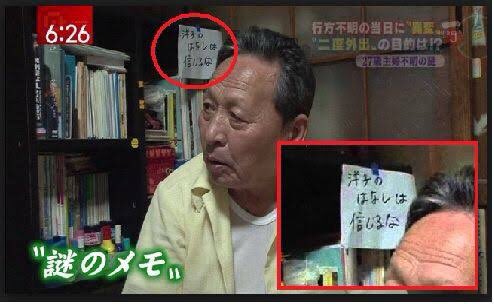 6:26
行方不明の当日に"異変"
"二度外出"の目的は!?
27歳主婦不明の謎
洋子の
はなしは
信じるな
洋子の
はなしは
信じるな
"謎のメモ"